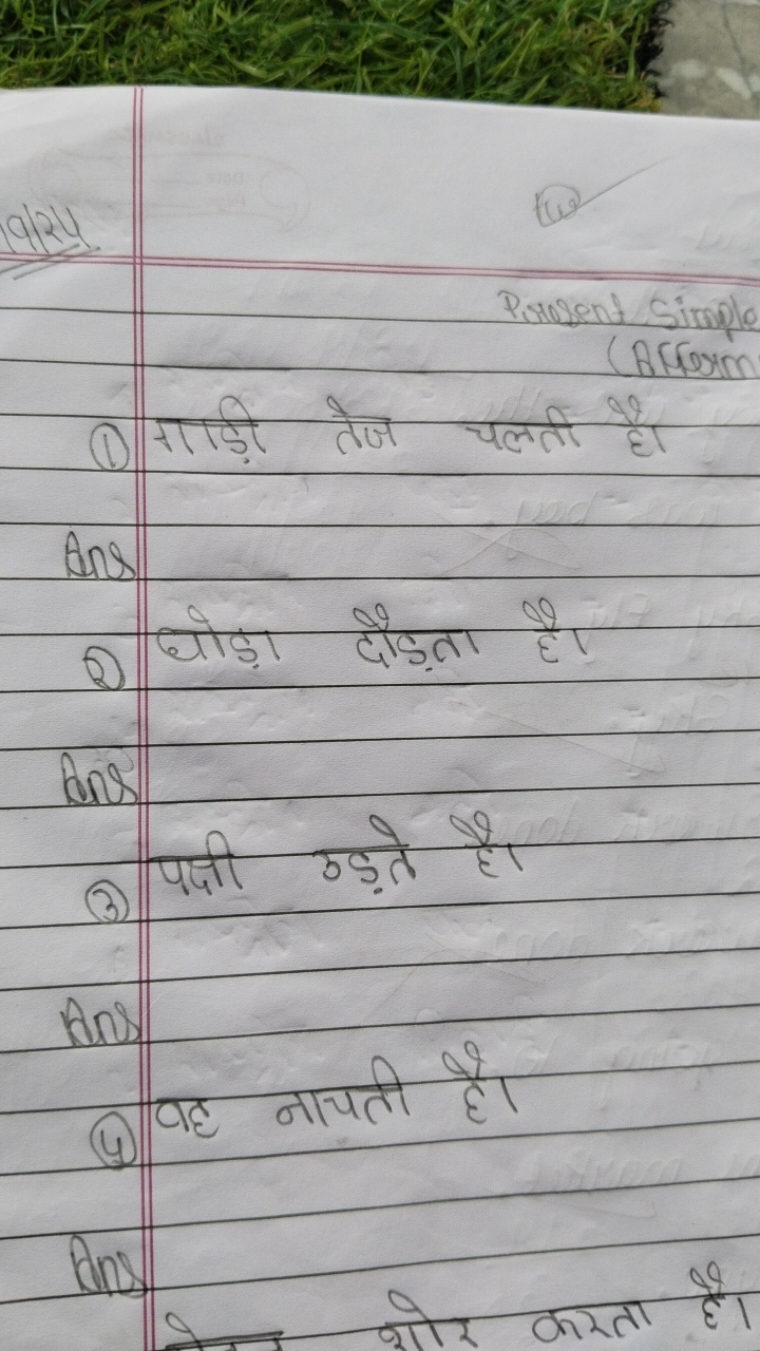 9/24
Present Simple
(Afferm
① गाड़ी तेज चलती है।
Ans
② घोड़ा दौड़ता है।
Ans
③ पक्षी उड़ते है।
Ans
④ वह नाचती है।
Ans
शोर करता है।